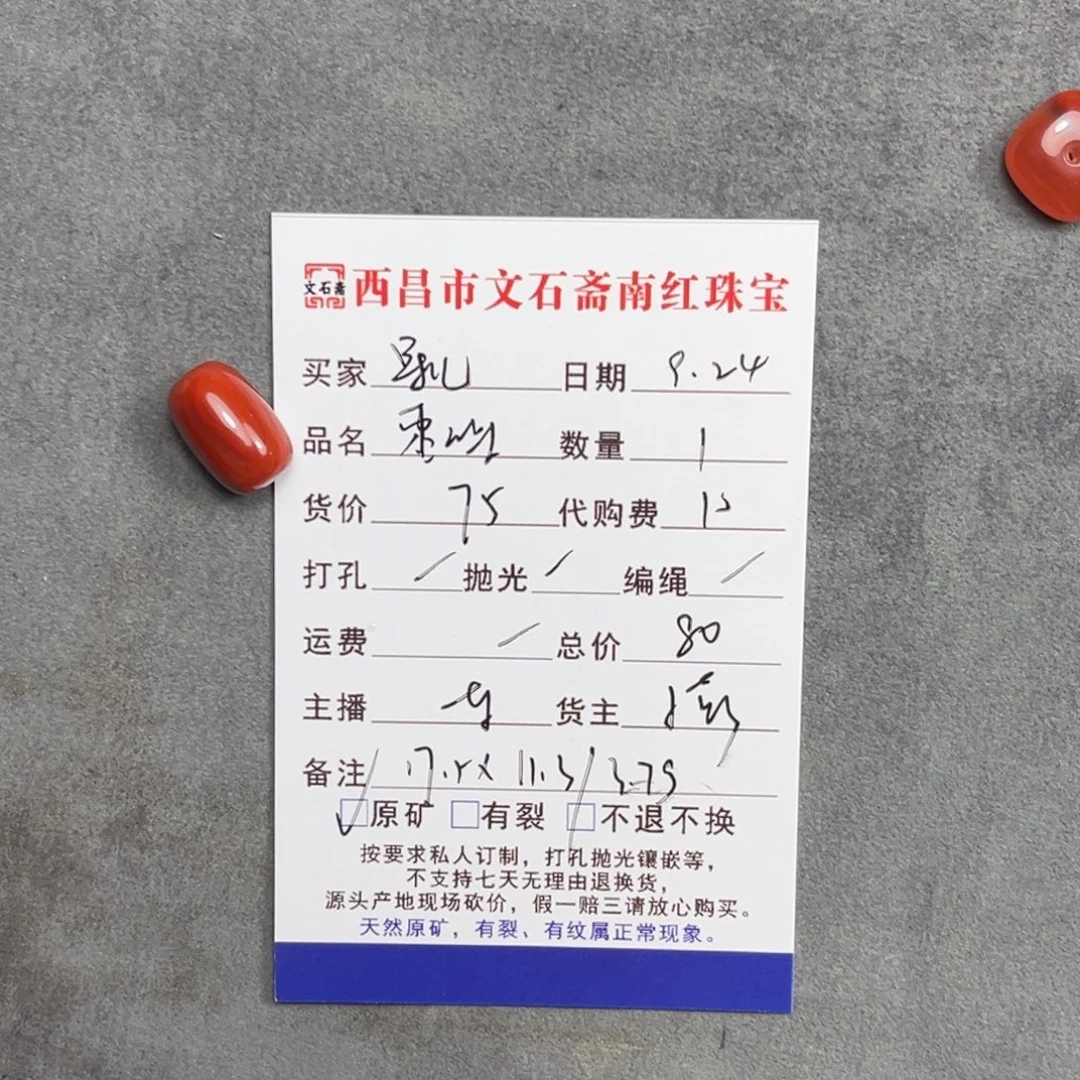 文石斋 西昌市文石斋南红珠宝
买家 日期 9.24
品名 数量 1
货价 75 代购费
打孔 / 抛光 / 编绳 /
运费 / 总价 80
主播 货主
备注
原矿 有裂 不退不换
按要求私人订制，打孔抛光镶嵌等，
不支持七天无理由退换货，
源头产地现场砍价，假一赔三请放心购买。
天然原矿，有裂、有纹属正常现象。